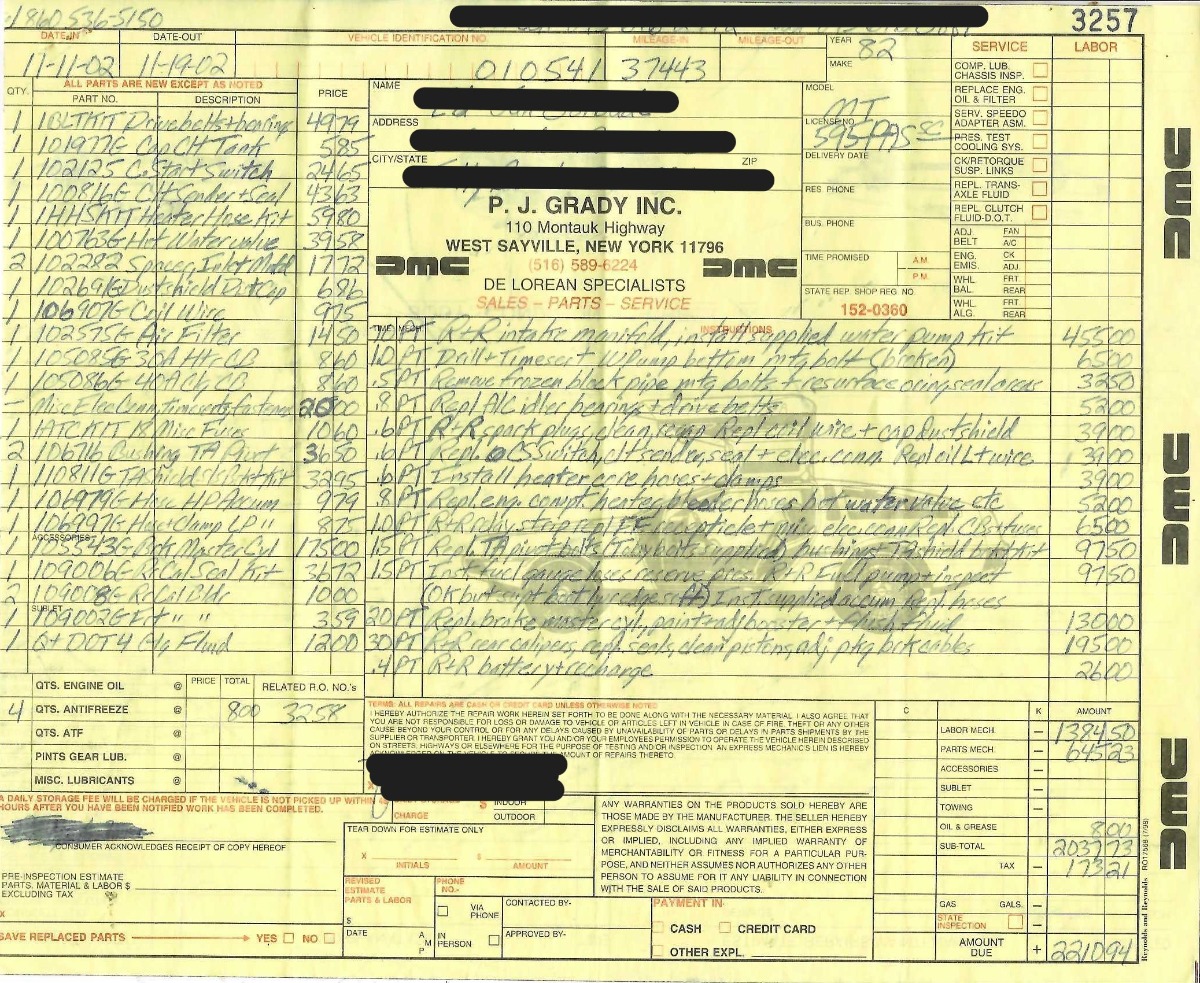 1 860 536-5150
3257
DATE-IN DATE-OUT VEHICLE IDENTIFICATION NO. MILEAGE-IN MILEAGE-OUT YEAR 82
11-11-02 11-19-02 010541 37443 MAKE
ALL PARTS ARE NEW EXCEPT AS NOTED
QTY. PART NO. DESCRIPTION PRICE
1 1BLTKIT Drive belts+bearings 4979
1 101977G Cap Clt Tank 585
1 102125 C.Start Switch 2465
1 100816G Clt Sender+Seal 4363
1 1HHSKIT Heater Hose Kit 5980
1 100763G Hot Water valve 3958
2 102282 Inlet 1772
1 102691G Dustshield Dist Cap 686
1 106907G Coil Wire 975
1 102575G Air Filter 1450
1 105085G 30A Htr CB 860
1 105086G 40A Clg CB 860
- Misc Elec Comm, fasteners 2000
1 Misc Fuses 1060
2 106716 Bushing TA Pivot 3650
1 110811G TA Shield Brkt+Kit 3295
1 106979G Hose HP Accum 979
1 106997G Hose+Clamp LP " 875
ACCESSORIES
1 Master Cyl 17500
1 109006G R Cal Seal Kit 3672
2 109008G 1000
SUBLET
1 109002G " " 359
1 Qt DOT 4 Fluid 1200
NAME
ADDRESS
CITY/STATE ZIP
P. J. GRADY INC.
110 Montauk Highway
WEST SAYVILLE, NEW YORK 11796
DMC (516) 589-6224 DMC
DE LOREAN SPECIALISTS
SALES – PARTS – SERVICE
MODEL
LICENSE NO.
595PAS SC
DELIVERY DATE
RES. PHONE
BUS. PHONE
TIME PROMISED A.M. P.M.
STATE REP. SHOP REG. NO.
152-0360
SERVICE LABOR
COMP. LUB. CHASSIS INSP.
REPLACE ENG. OIL & FILTER
SERV. SPEEDO ADAPTER ASM.
PRES. TEST COOLING SYS.
CK/RETORQUE SUSP. LINKS
REPL. TRANS-AXLE FLUID
REPL. CLUTCH FLUID-D.O.T.
ADJ. BELT FAN A/C
ENG. EMIS. CK ADJ.
WHL BAL. FRT. REAR
WHL ALG. FRT. REAR
DMC
DMC
DMC
TIME MECH. INSTRUCTIONS
PT R+R intake manifold, install supplied water pump Kit 45500
1.0 PT Drill+Timesert W/Pump bottom mtg bolt (broken) 6500
.5 PT Remove frozen block pipe mtg bolts + resurface oring seal areas 3250
.8 PT Repl A/C idler bearings + drive belts 5200
.6 PT R+R spark plugs, clean, Repl coil wire + cap Dustshield 3900
.6 PT Repl CS Switch, clt sender, seal + elec. comm. Repl 3900
.6 PT Install heater core hoses + clamps 3900
.8 PT Repl eng. compt heater, bleeder hoses hot water valve etc 5200
1.0 PT R+R repl receptacle + elec. Repl. CBs + fuses 6500
1.5 PT Repl TA pivot bolts (Toby bolts supplied), bushings TA shield brkt kit 9750
1.5 PT fuel gauge R+R Fuel pump + inspect 9750
(OK but Inst. supplied accum, repl. hoses
2.0 PT Repl. brake master cyl, paint+adj booster + flush fluid 13000
3.0 PT R+R rear calipers, repl. seals, clean pistons, adj pkg brk cables 19500
.4 PT R+R battery + recharge 2600
QTS. ENGINE OIL @ PRICE TOTAL RELATED P.O. NO.'s
4 QTS. ANTIFREEZE @ 800 3258
QTS. ATF @
PINTS GEAR LUB. @
MISC. LUBRICANTS @
TERMS: ALL REPAIRS ARE CASH OR CREDIT CARD UNLESS OTHERWISE NOTED
I HEREBY AUTHORIZE THE REPAIR WORK HEREIN SET FORTH TO BE DONE ALONG WITH THE NECESSARY MATERIAL. I ALSO AGREE THAT
YOU ARE NOT RESPONSIBLE FOR LOSS OR DAMAGE TO VEHICLE OR ARTICLES LEFT IN VEHICLE IN CASE OF FIRE, THEFT OR ANY OTHER
CAUSE BEYOND YOUR CONTROL OR FOR ANY DELAYS CAUSED BY UNAVAILABILITY OF PARTS OR DELAYS IN PARTS SHIPMENTS BY THE
SUPPLIER OR TRANSPORTER. I HEREBY GRANT YOU AND/OR YOUR EMPLOYEES PERMISSION TO OPERATE THE VEHICLE HEREIN DESCRIBED
ON STREETS, HIGHWAYS OR ELSEWHERE FOR THE PURPOSE OF TESTING AND/OR INSPECTION. AN EXPRESS MECHANIC'S LIEN IS HEREBY
ACKNOWLEDGED ON THE VEHICLE TO SECURE THE AMOUNT OF REPAIRS THERETO.
A DAILY STORAGE FEE WILL BE CHARGED IF THE VEHICLE IS NOT PICKED UP WITHIN 48
HOURS AFTER YOU HAVE BEEN NOTIFIED WORK HAS BEEN COMPLETED.
CHARGE $ INDOOR OUTDOOR
CONSUMER ACKNOWLEDGES RECEIPT OF COPY HEREOF
PRE-INSPECTION ESTIMATE
PARTS, MATERIAL & LABOR $
EXCLUDING TAX
X
SAVE REPLACED PARTS YES NO
TEAR DOWN FOR ESTIMATE ONLY
X $
INITIALS AMOUNT
REVISED ESTIMATE PARTS & LABOR
$
DATE A M P
PHONE NO.-
VIA PHONE
IN PERSON
CONTACTED BY-
APPROVED BY-
ANY WARRANTIES ON THE PRODUCTS SOLD HEREBY ARE
THOSE MADE BY THE MANUFACTURER. THE SELLER HEREBY
EXPRESSLY DISCLAIMS ALL WARRANTIES, EITHER EXPRESS
OR IMPLIED, INCLUDING ANY IMPLIED WARRANTY OF
MERCHANTABILITY OR FITNESS FOR A PARTICULAR PUR-
POSE, AND NEITHER ASSUMES NOR AUTHORIZES ANY OTHER
PERSON TO ASSUME FOR IT ANY LIABILITY IN CONNECTION
WITH THE SALE OF SAID PRODUCTS.
PAYMENT IN-
CASH CREDIT CARD
OTHER EXPL.
C K AMOUNT
LABOR MECH. – 138450
PARTS MECH. – 64523
ACCESSORIES –
SUBLET –
TOWING
OIL & GREASE 800
SUB-TOTAL 203773
TAX – 17321
GAS GALS. –
STATE INSPECTION –
AMOUNT DUE + 221094
Reynolds and Reynolds